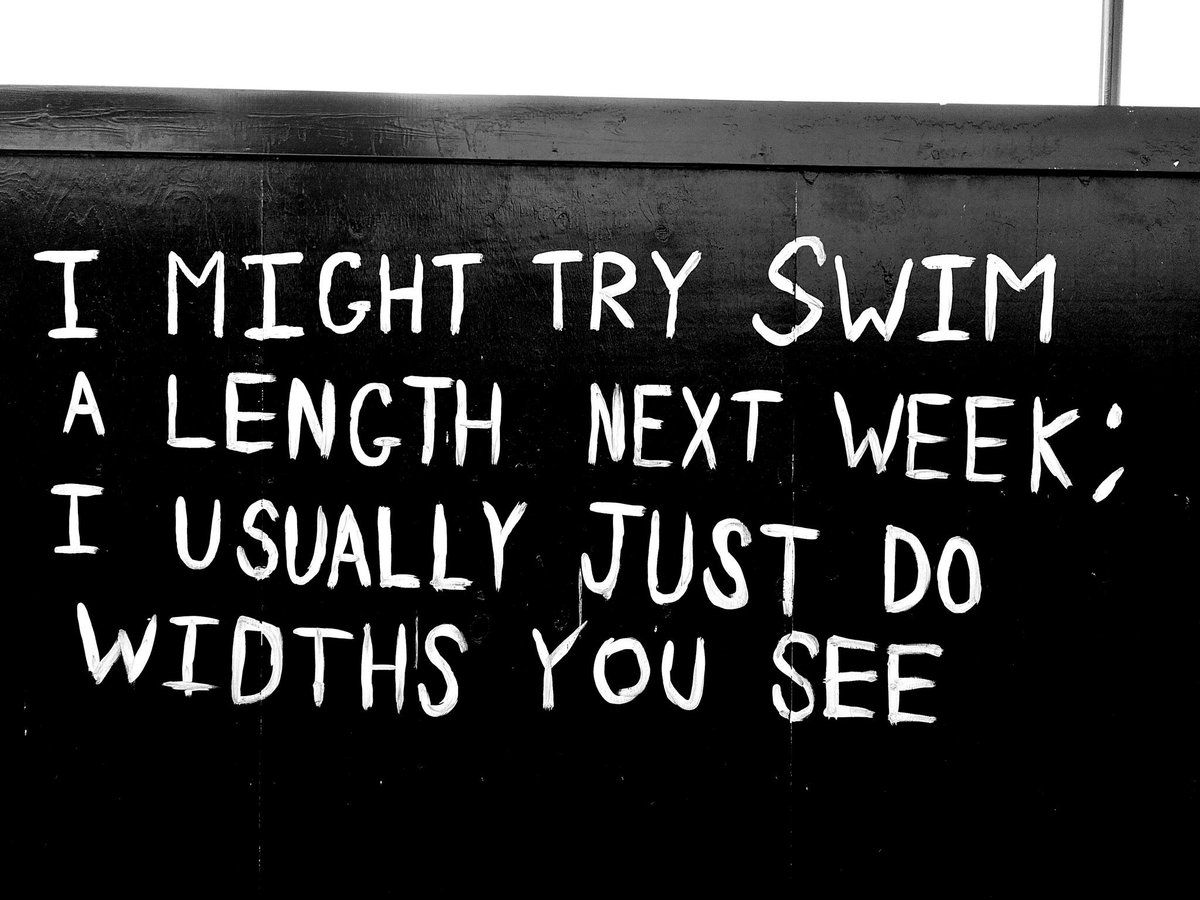 I MIGHT TRY SWIM
A LENGTH NEXT WEEK;
I USUALLY JUST DO
WIDTHS YOU SEE